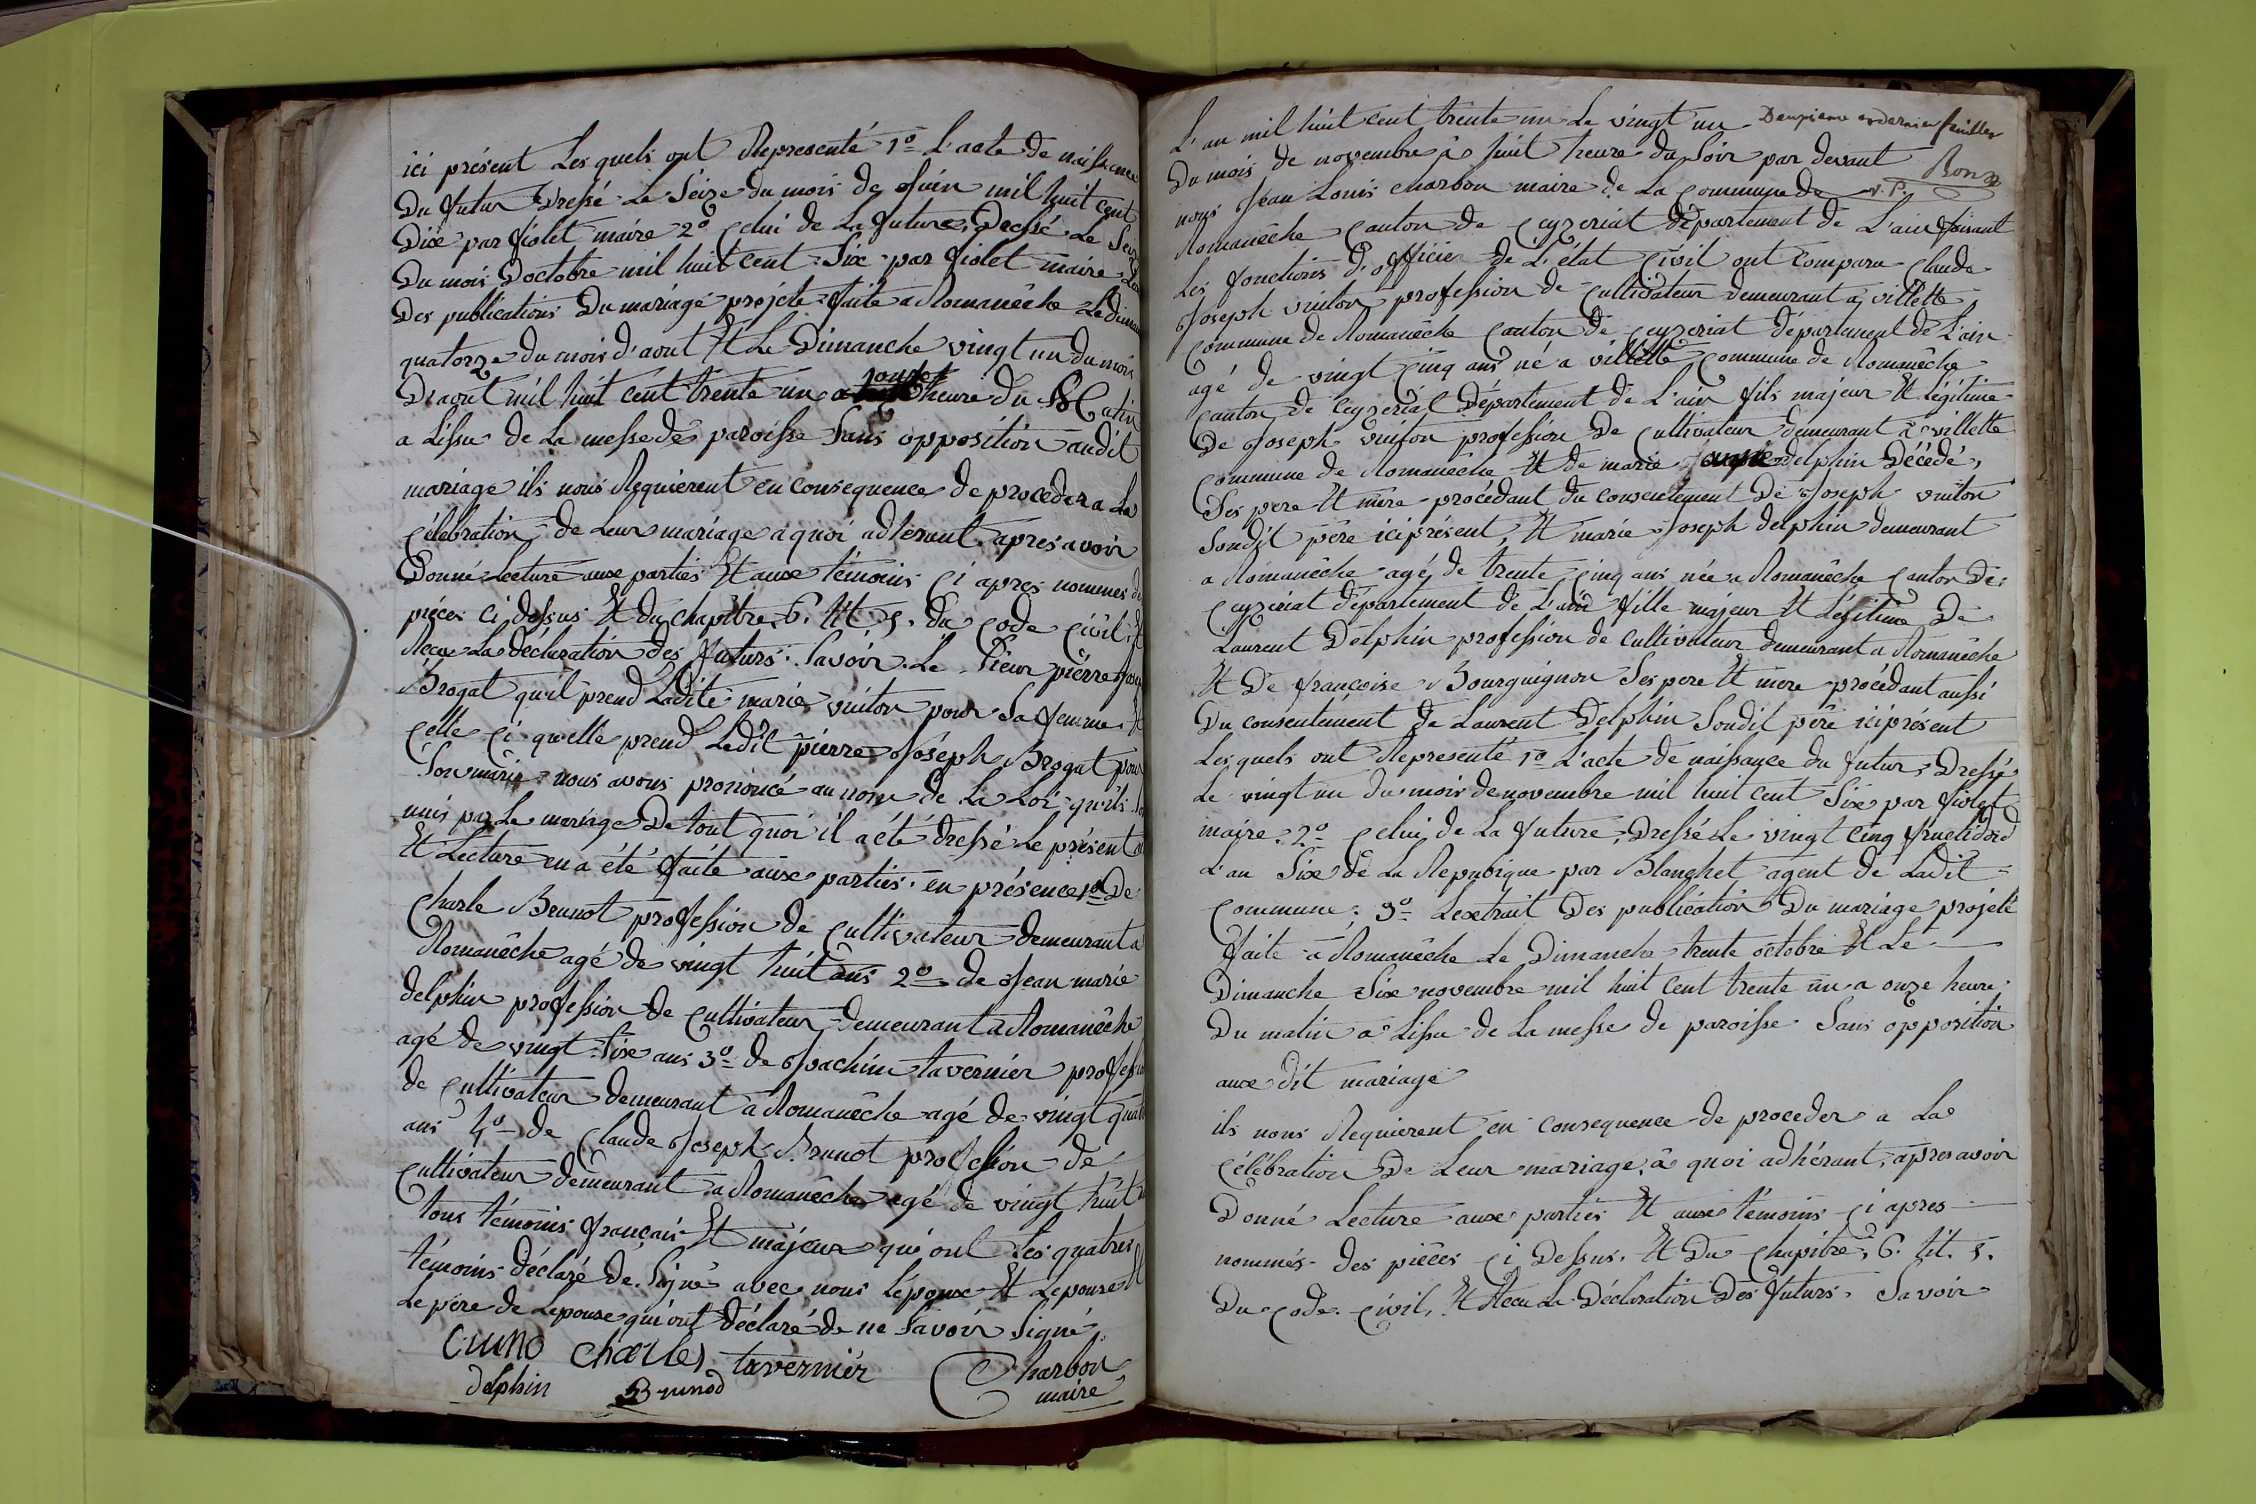 ici présent Les quels ont Represente 1º L'acte de naissance
Du futur Dressé Le Seize du mois de Juin mil huit cent
Dix par fiolet maire 2º Celui de La future Dressé Le
Du mois Doctobre mil huit cent Six par fiolet maire
Des publications Du mariage projeté faite a Romanêche Le
quatorze du mois d'aout Et Le Dimanche vingt un du mois
D'aout mil huit cent trente un a onze heure du Matin
a Lissu de La messe de paroisse Sans opposition audit
mariage ils nous Requierent en consequence de proceder a La
Célébration de Leur mariage a quoi adherant apres avoir
Donné Lecture aux parties Et aux témoins ci apres nommés
piéces ci dessus Et du chapitre 6. tit. 5. du Code Civil Et
Recu La déclaration des futurs. Savoir Le Sieur pierre
Brogat qu'il prend Ladite marie vuiton pour Sa femme Et
Celle Ci quelle prend Ledit pierre Joseph Brogat pour
Son mari nous avons prononcé au nom de La Loi qu'ils
unis par Le mariage De tout quoi il a été dressé Le présent
Et Lecture en a été faite aux parties. en présence 1º De
Charle Brunot profession de Cultivateur demeurant a
Romanêche agé de vingt huit ans 2º de Jean marie
delphin profession de Cultivateur demeurant a Romanêche
agé de vingt Six ans 3º de Joachim tavernier
de Cultivateur demeurant a Romanêche agé de vingt
ans 4º de Claude Joseph Brunot profession de
Cultivateur demeurant a Romanêche agé de vingt huit
tous témoins français Et majeur qui ont Les quatres
témoins déclaré de Signé avec nous L'époux Et Lepouse Et
Le pere de Lepouse qui ont Déclaré de ne Savoir Signé.
Charles tavernier Charbon
delphin Brunod maire
L'an mil huit cent trente un Le vingt un Deuxieme et dernier feuillet
Du mois de novembre à huit heure du Soir par devant
nous Jean Louis Charbon maire de La Commune de
Romanêche Canton de Ceyzeriat département de L'ain faisant
Les fonctions d'officier de L'état Civil ont Comparu Claude
Joseph vuiton profession de Cultivateur demeurant a villette
Commune de Romanêche Canton de Ceyzeriat département de L'ain
agé de vingt Cinq ans né a villette Commune de Romanêche
Canton de Ceyzeriat Département de L'ain fils majeur Et Légitime
De Joseph vuiton profession De Cultivateur demeurant a villette
Commune de Romanêche Et de marie delphin Décédé,
Ses pere Et mère procédant du consentement De Joseph vuiton
Sondit père ici présent, Et marie Joseph delphin demeurant
a Romanêche agé de trente Cinq ans née a Romanêche Canton De
Ceyzeriat département de L'ain fille majeur Et Légitime De
Laurent Delphin profession de Cultivateur demeurant a Romanêche
Et De françoise Bourguignon Ses pere Et mere procédant aussi
Du consentement de Laurent Delphin Sondit père ici présent
Les quels ont Represente 1º L'acte De naissance du futur Dressé
Le vingt un du mois de novembre mil huit cent Six par fiolet
maire 2º Celui de La future Dressé Le vingt Cinq fructidord
L'an Six de La Repubique par Blanchet agent de Ladit
Commune; 3º Lextrait Des publication Du mariage projeté
faite a Romanêche Le Dimanche trente octobre Et Le
Dimanche Six novembre mil huit Cent trente un a onze heure
Du matin a Lissu de La messe de paroisse Sans opposition
aux dit mariage
ils nous Requierent en consequence de proceder a La
Célébration De Leur mariage, a quoi adhérant, apres avoir
Donné Lecture aux parties Et aux témoins Ci apres
nommés des piéces Ci Dessus. Et Du Chapitre, 6. tit. 5.
Du Code Civil, Et Recu La Déclaration Des futurs. Savoir